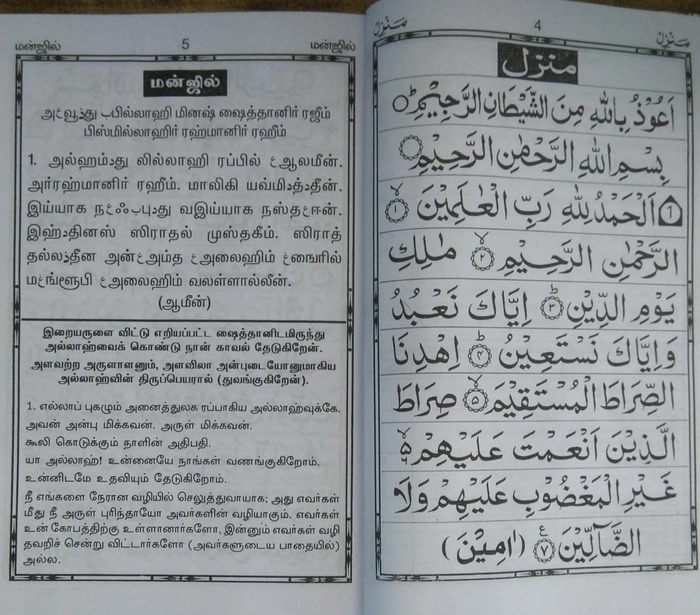 மன்ஜில் 5 மன்ஜில்
மன்ஜில்
பில்லாஹி மினஷ் ஷைத்தானிர் ரஜீம்
பிஸ்மில்லாஹிர் ரஹ்மானிர் ரஹீம்
1. அல்ஹம்து லில்லாஹி ரப்பில் ஆலமீன்.
அர்ரஹ்மானிர் ரஹீம். மாலிகி யவ்மித்தீன்.
இய்யாக வஇய்யாக நஸ்தஈன்.
இஹ்தினஸ் ஸிராதல் முஸ்தகீம். ஸிராத்
தல்லதீன அன்அம்த அலைஹிம் கைரில்
அலைஹிம் வலள்ளால்லீன்.
(ஆமீன்)
இறையருளை விட்டு எறியப்பட்ட ஷைத்தானிடமிருந்து
அல்லாஹ்வைக் கொண்டு நான் காவல் தேடுகிறேன்.
அளவற்ற அருளாளனும், அளவிலா அன்புடையோனுமாகிய
அல்லாஹ்வின் திருப்பெயரால் (துவங்குகிறேன்).
1. எல்லாப் புகழும் அனைத்துலக ரப்பாகிய அல்லாஹ்வுக்கே.
அவன் அன்பு மிக்கவன். அருள் மிக்கவன்.
கூலி கொடுக்கும் நாளின் அதிபதி.
யா அல்லாஹ்! உன்னையே நாங்கள் வணங்குகிறோம்.
உன்னிடமே உதவியும் தேடுகிறோம்.
நீ எங்களை நேரான வழியில் செலுத்துவாயாக; அது எவர்கள்
மீது நீ அருள் புரிந்தாயோ அவர்களின் வழியாகும். எவர்கள்
உன் கோபத்திற்கு உள்ளானார்களோ, இன்னும் எவர்கள் வழி
தவறிச் சென்று விட்டார்களோ (அவர்களுடைய பாதையில்)
அல்ல.
منزل 4 منزل
منزل
اَعُوْذُ بِاللّٰهِ مِنَ الشَّيْطَانِ الرَّجِيْمِ
بِسْمِ اللّٰهِ الرَّحْمٰنِ الرَّحِيْمِ
١ اَلْحَمْدُ لِلّٰهِ رَبِّ الْعٰلَمِيْنَ ١
الرَّحْمٰنِ الرَّحِيْمِ ٢ مٰلِكِ
يَوْمِ الدِّيْنِ ٣ اِيَّاكَ نَعْبُدُ
وَاِيَّاكَ نَسْتَعِيْنُ ٤ اِهْدِنَا
الصِّرَاطَ الْمُسْتَقِيْمَ ٥ صِرَاطَ
الَّذِيْنَ اَنْعَمْتَ عَلَيْهِمْ
غَيْرِ الْمَغْضُوْبِ عَلَيْهِمْ وَلَا
الضَّآلِّيْنَ ٧ (اٰمِيْنَ)